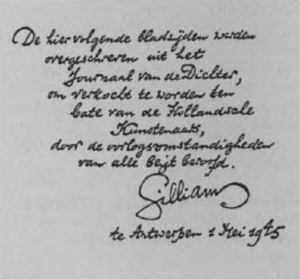 De hier volgende bladzijden werden
overgeschreven uit het
Journaal van de Dichter,
om verkocht te worden ten
bate van de Hollandsche
Kunstenaars,
door de oorlogsomstandigheden
van alle bezit beroofd.
Gilliams
te Antwerpen 1 Mei 1945